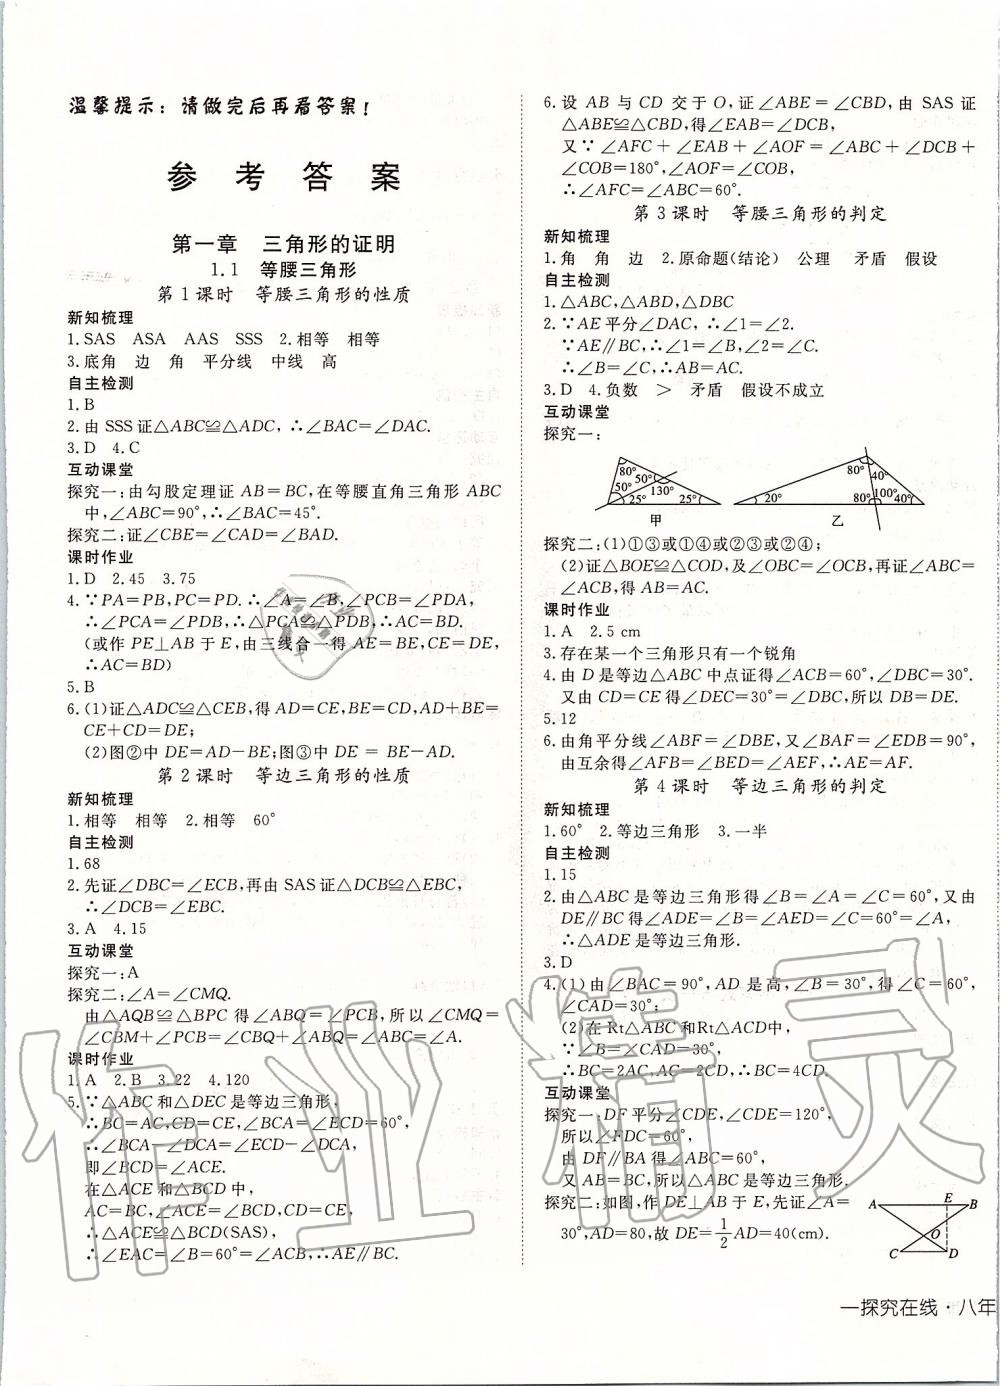 温馨提示：请做完后再看答案！
参考答案
第一章 三角形的证明
1.1 等腰三角形
第1课时 等腰三角形的性质
新知梳理
1.SAS ASA AAS SSS 2.相等 相等
3.底角 边 角 平分线 中线 高
自主检测
1.B
2.由SSS证△ABC≌△ADC，∴∠BAC=∠DAC.
3.D 4.C
互动课堂
探究一：由勾股定理证AB=BC，在等腰直角三角形ABC
中，∠ABC=90°，∴∠BAC=45°.
探究二：证∠CBE=∠CAD=∠BAD.
课时作业
1.D 2.45 3.75
4.∵PA=PB，PC=PD.∴∠A=∠B，∠PCB=∠PDA，
∴∠PCA=∠PDB，∴△PCA≌△PDB，∴AC=BD.
(或作PE⊥AB于E，由三线合一得AE=BE，CE=DE，
∴AC=BD)
5.B
6.(1)证△ADC≌△CEB，得AD=CE，BE=CD，AD+BE=
CE+CD=DE；
(2)图②中DE=AD-BE；图③中DE=BE-AD.
第2课时 等边三角形的性质
新知梳理
1.相等 相等 2.相等 60°
自主检测
1.68
2.先证∠DBC=∠ECB，再由SAS证△DCB≌△EBC，
∴∠DCB=∠EBC.
3.A 4.15
互动课堂
探究一：A
探究二：∠A=∠CMQ.
由△AQB≌△BPC得∠ABQ=∠PCB，所以∠CMQ=
∠CBM+∠PCB=∠CBQ+∠ABQ=∠ABC=∠A.
课时作业
1.A 2.B 3.22 4.120
5.∵△ABC和△DEC是等边三角形，
∴BC=AC，CD=CE，∠BCA=∠ECD=60°，
∴∠BCA-∠DCA=∠ECD-∠DCA，
即∠BCD=∠ACE.
在△ACE和△BCD中，
AC=BC，∠ACE=∠BCD，CD=CE，
∴△ACE≌△BCD(SAS)，
∴∠EAC=∠B=60°=∠ACB，∴AE∥BC.
6.设AB与CD交于O，证∠ABE=∠CBD，由SAS证
△ABE≌△CBD，得∠EAB=∠DCB，
又∵∠AFC+∠EAB+∠AOF=∠ABC+∠DCB+
∠COB=180°，∠AOF=∠COB，
∴∠AFC=∠ABC=60°.
第3课时 等腰三角形的判定
新知梳理
1.角 角 边 2.原命题(结论) 公理 矛盾 假设
自主检测
1.△ABC，△ABD，△DBC
2.∵AE平分∠DAC，∴∠1=∠2.
∵AE∥BC，∴∠1=∠B，∠2=∠C，
∴∠B=∠C，∴AB=AC.
3.D 4.负数 > 矛盾 假设不成立
互动课堂
探究一：
80° 50° 50° 130° 25° 25°
甲
80° 40° 20° 80° 100° 40°
乙
探究二：(1)①③或①④或②③或②④；
(2)证△BOE≌△COD，及∠OBC=∠OCB，再证∠ABC=
∠ACB，得AB=AC.
课时作业
1.A 2.5 cm
3.存在某一个三角形只有一个锐角
4.由D是等边△ABC中点证得∠ACB=60°，∠DBC=30°.
又由CD=CE得∠DEC=30°=∠DBC，所以DB=DE.
5.12
6.由角平分线∠ABF=∠DBE，又∠BAF=∠EDB=90°，
由互余得∠AFB=∠BED=∠AEF，∴AE=AF.
第4课时 等边三角形的判定
新知梳理
1.60° 2.等边三角形 3.一半
自主检测
1.15
2.由△ABC是等边三角形得∠B=∠A=∠C=60°，又由
DE∥BC得∠ADE=∠B=∠AED=∠C=60°=∠A，
∴△ADE是等边三角形.
3.D
4.(1)由∠BAC=90°，AD是高，∠B=30°，得∠C=60°，
∠CAD=30°；
(2)在Rt△ABC和Rt△ADC中，
∵∠B=∠CAD=30°，
∴BC=2AC，AC=2CD，∴BC=4CD.
互动课堂
探究一：DF平分∠CDE，∠CDE=120°，
所以∠FDC=60°，
由DF∥BA得∠ABC=60°，
∴∠A=∠B=∠C=60°，∴△ABC是等边三角形.
探究二：如图，作DE⊥AB于E，先证∠A=
30°，AD=80，故DE=1/2AD=40(cm).
A E B O C D
一探究在线·八年
作业精灵